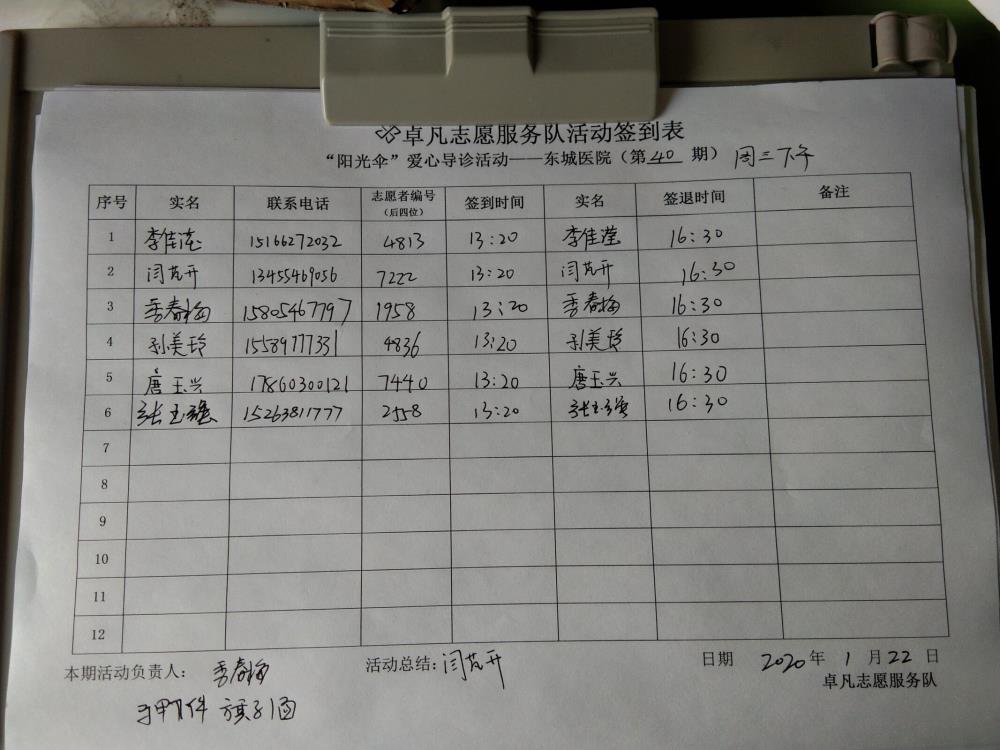 卓凡志愿服务队活动签到表
“阳光伞”爱心导诊活动——东城医院（第40期） 周三下午
序号 实名 联系电话 志愿者编号（后四位） 签到时间 实名 签退时间 备注
1 李佳滢 15166272032 4813 13:20 李佳滢 16:30
2 闫芃开 13455469056 7222 13:20 闫芃开 16:30
3 季春梅 15805467797 1958 13:20 季春梅 16:30
4 孙美玲 15589777331 4836 13:20 孙美玲 16:30
5 唐玉兴 17860300121 7440 13:20 唐玉兴 16:30
6 张玉强 15263811777 2558 13:20 张玉强 16:30
7
8
9
10
11
12
本期活动负责人： 季春梅 活动总结：闫芃开 日期 2020年1月22日
卓凡志愿服务队
件 旗子1面